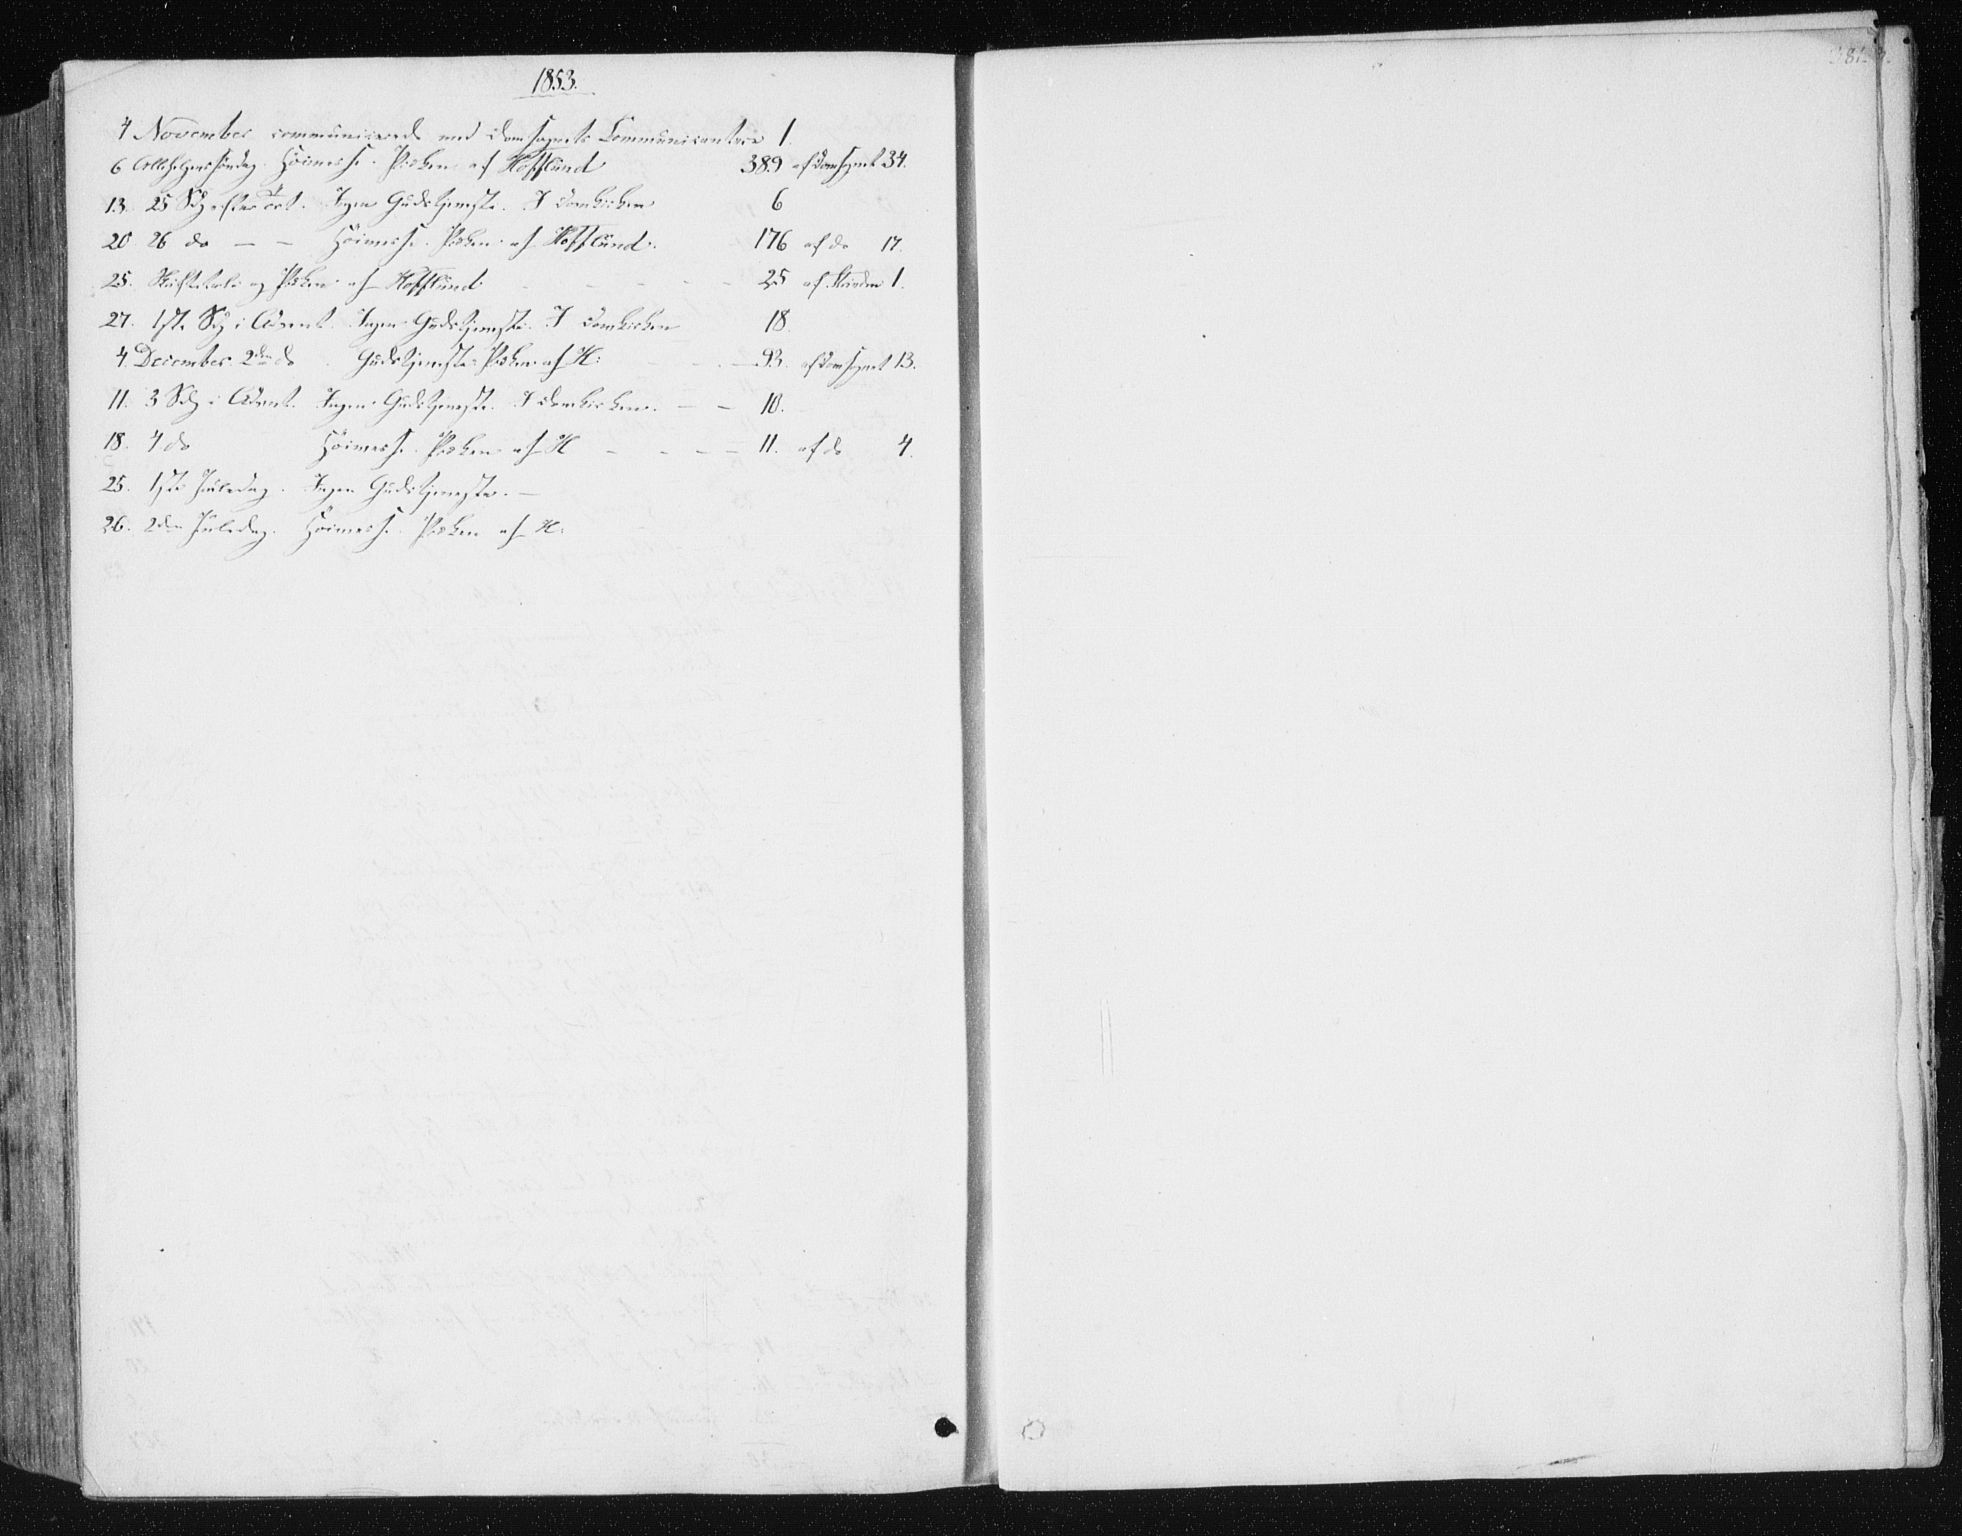 1853.
4 November communicerede med Domsognets Communicantere 1.
6 Allehelgenssöndag. Höimesse. Præken af Hofflund 389 af Domsognet 34.
13. 25 Sdg efter Trt. Ingen Gudstjeneste. I Domkirken 6
20 26 do — — Höimesse. Præken af Hofflund. 176 af do 17.
25. Skriftetale og Præken af Hofflund - - - - - 25 af Staden 1.
27. 1ste Sdg i Advent. Ingen Gudstjeneste. I Domkirken 18.
4. December. 2den do. Gudstjeneste. Præken af H: - - - 93. af Domsognet 13.
11. 3 Sdg i Advent. Ingen Gudstjeneste. I Domkirken. — — 10.
18. 4 do Höimesse. Præken af H - - - - 11. af do 4.
25. 1ste Juledag. Ingen Gudstjeneste. —
26. 2den Juledag. Höimesse. Præken af H: